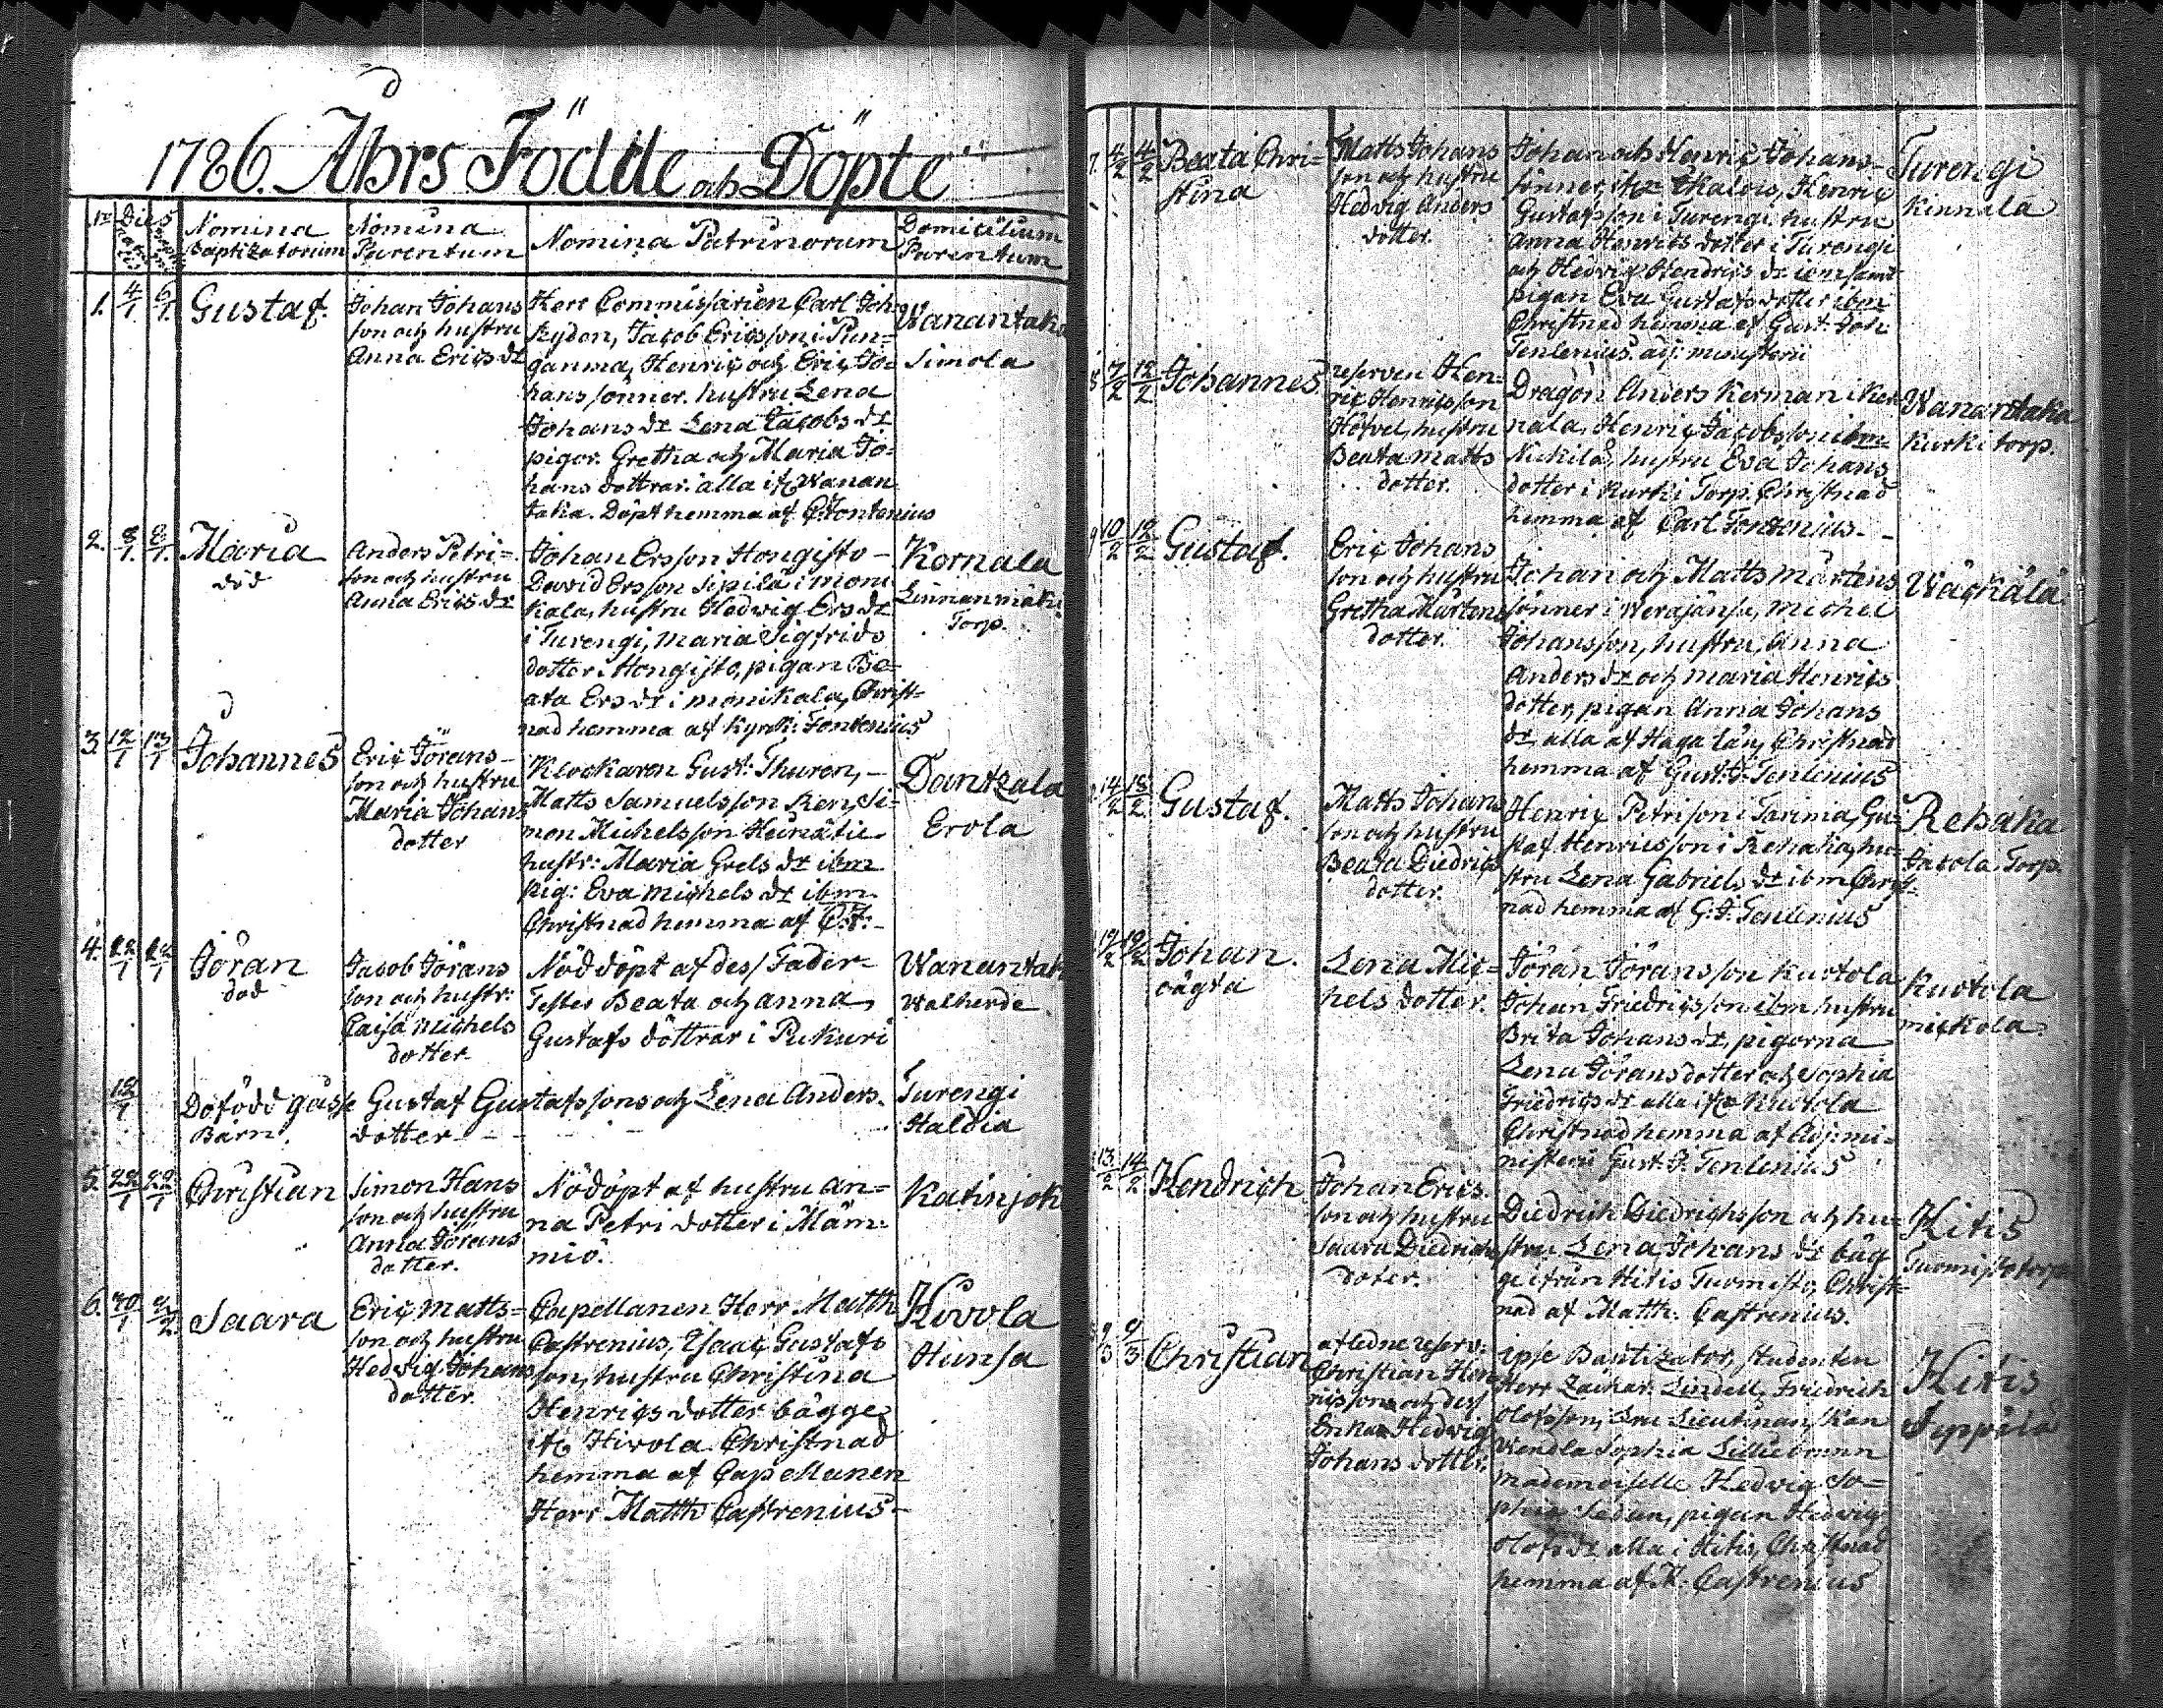 1786. Åhrs Födde och Döpte
Nomina Baptizatorum
Nomina Parentum
Nomina Patrinorum
Domicilium Parentum
1. 4/1 6/1 Gustaf.
Johan Johans
son och hustru
Anna Erics dr
Herr Commissarien Carl Joh
Rydon, Jacob Ericsson i Pun=
ganma, Henric och Eric Jo=
hans sönner. hustru Lena
Johans dr Lena Jacobs dr
pigor. Gretha och Maria Jo=
hans döttrar. alla ifr Wanan
taka. Döpt hemma af C. Fontenius
Wanantaka
Simola
2. 8/1. 8/1. Maria
död
Anders Petri=
son och hustru
Anna Erics dr
Johan Ersson Hongisto
David Ersson Sipilä i moni
kala, hustru Hedwig Ers dr
i Turengi, Maria Sigfrids
dotter i Hongisto, pigan Be=
ata Ers dr i monikala, Christ=
nad hemma af Fontenius
Kornala
Linnanmäki
Torp.
3. 12/1 13/1 Johannes
Eric Jörans=
son och hustru
Maria Johans
dotter
Klockaren Gust: Thuren,
Matts Samuelsson Ken, Si=
mon Michelsson
hustr: Maria Grels dr ibm
pig: Eva Michels dr ibm.
Christnad hemma af C. F:
Dantzala
Erola
4. 12/1 12/1 Jöran
död
Jacob Jörans
son och hustr:
Caisa Michels
dotter
Nöddöpt af dess Fader=
Beata och Anna
Gustafs döttrar i Pukuri
Wanantaka
Walherde
18/1 Döfödd gosse
Barn.
Gustaf Gustafssons och Lena Anders
dotter
Turengi
Haldia
5. 22/1 22/1 Christian
Simon Hans
son och hustru
Anna Jörans
dotter.
Nödöpt af hustru An=
na Petri dotter i Mäm=
miö.
Katinjok
6. 30/1 2/2 Saara
Eric Matts=
son och hustru
Hedvig Johans
dotter.
Capellanen Herr Matth
Castrenius, Isaac Gustafs
son, hustru Christina
Henrics dotter bägge
ifr Hivola. Christnad
hemma af Capellanen
Herr Matth Castrenius
Hivola
Hunsa
7. 4/2 4/2 Beata Chri=
stina
Matts Johans
son och hustru
Hedvig Anders
dotter.
Johan och Henric Johans=
sönner, Henric
Gustafsson i Turengi hustru
Anna Henrics dotter i Turengi
och Hedvig Hendrics dr ibm samt
pigan Eva Gustafs dotter ibm
Christnad hemma af Gust. Joh
Tenlenius. adj: ministerii
Turengi
Kinnala
8 7/2 12/2 Johannes
reserven Hen=
ric Henricsson
hustru
Beata Matts
dotter.
Dragon Anders Kerman i Ker
nala, Henric Jacobsson ibm
Nickilä, hustru Eva Johans
dotter i Kurki Torp. Christnad
hemma af Carl Fontenius.
Wanantaka
Kurki torp.
9 10/2 12/2 Gustaf.
Eric Johans
son och hustru
Gretha Mårtens
dotter.
Johan och Matts Mårtens
sönner i Werajänsu, Michel
Johansson, hustru, Anna
Anders dr och Maria Henrics
dotter, pigan Anna Johans
dr, alla af Haga län, Christnad
hemma af Gust: J. Tenlenius
Wäckälä
14/2 15/2 Gustaf.
Matts Johans
son och hustru
Beata Diedrics
dotter.
Henric Petrison i Tarima, Gu=
staf Henricsson i Rehaka, hu=
stru Lena Gabriels dr ibm Christ=
nad hemma af G: J. Tenlenius
Rehaka
Jacola Torp.
12/2 19/2 Johan.
oägta
Lena Mic=
hels dotter.
Jöran Jöransson Kuotola
Johan Friedricsson ibm hustru
Brita Johans dr, pigorna
Lena Jörans dotter och Sophia
Friedrics dr alla ifr Kuotola
Christnad hemma af Adj: mi=
nisterii Gust. J. Tenlenius
Kuotola
mickola
13/2 14/2 Hendrich
Johan Erics
son och hustru
Saara Diedrichs
doter.
Diedrich Diedrichsson och hu=
stru Lena Johans dr bäg
ge ifrån Hitis Tuomisto, Christ=
nad af Matth: Castrenius.
Hitis
Tuomisto torp
9/3 9/3 Christian
afledne reserv:
Christian Hen
ricsson och dess
Enka Hedwig
Johans dotter.
ipse Baptizator, studenten
Herr Zachar. Lindell, Friedrich
Olofsson, Fru Lieutnanskan
Vendla Sophia Lilliebrunn
Mademoiselle Hedvig So=
phia pigan Hedwig
Olofs dr alla i Hitis, Christnad
hemma af M. Castrenius
Hitis
Seppälä